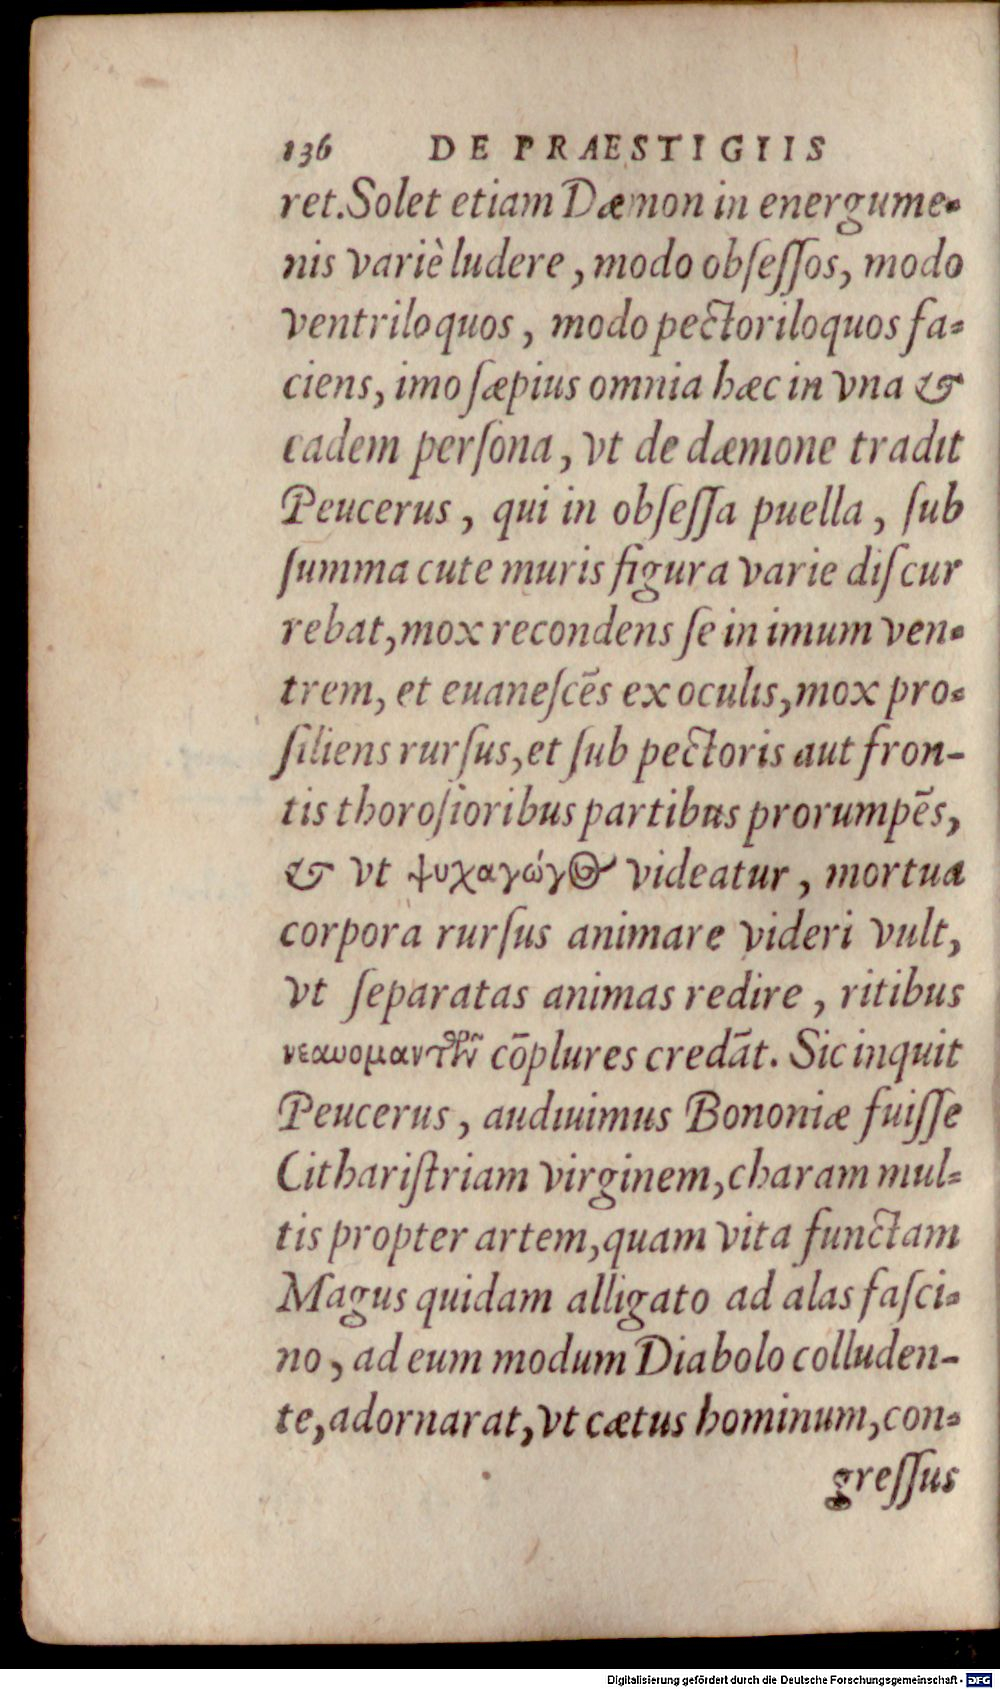 136 DE PRAESTIGIIS
ret. Solet etiam Dæmon in energume-
nis variè ludere, modo obſeſſos, modo
ventriloquos, modo pectoriloquos fa-
ciens, imo ſæpius omnia hæc in vna &
eadem perſona, vt de dæmone tradit
Peucerus, qui in obſeſſa puella, ſub
ſumma cute muris figura varie diſcur
rebat, mox recondens ſe in imum ven-
trem, et euaneſcēs ex oculis, mox pro-
ſiliens rurſus, et ſub pectoris aut fron-
tis thoroſioribus partibus prorumpēs,
& vt ψυχαγώγος videatur, mortua
corpora rurſus animare videri vult,
vt ſeparatas animas redire, ritibus
cōplures credāt. Sic inquit
Peucerus, audiuimus Bononiæ fuiſſe
Cithariſtriam virginem, charam mul-
tis propter artem, quam vita functam
Magus quidam alligato ad alas faſci-
no, ad eum modum Diabolo colluden-
te, adornarat, vt cætus hominum, con-
greſſus
Digitalisierung gefördert durch die Deutsche Forschungsgemeinschaft - DFG